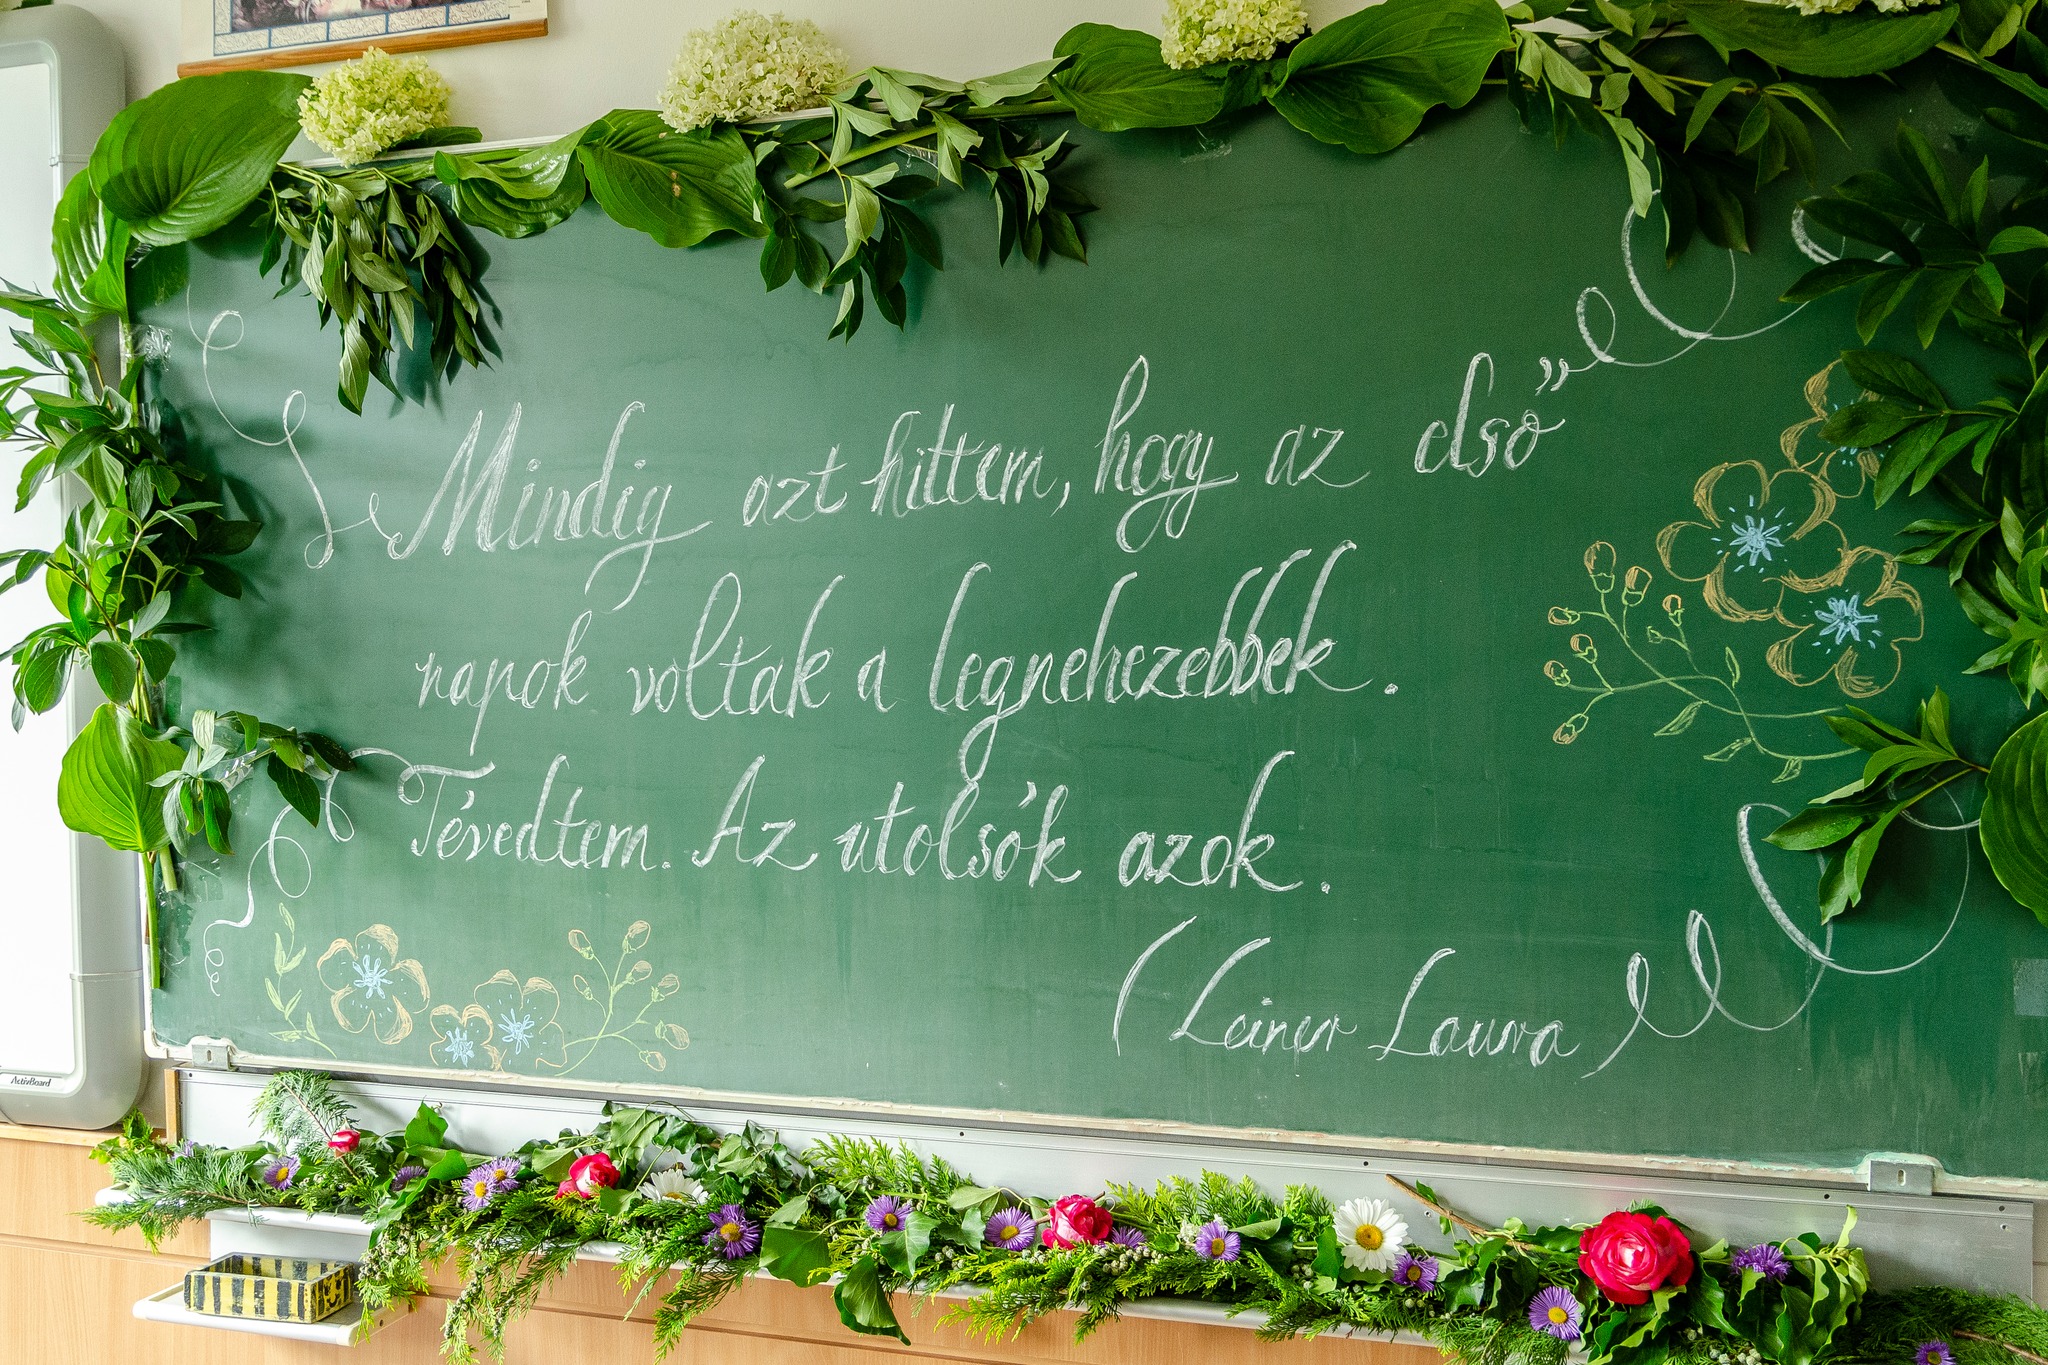 Mindig azt hittem, hogy az első
napok voltak a legnehezebbek.
Tévedtem. Az utolsók azok.
(Leiner Laura)
ActivBoard